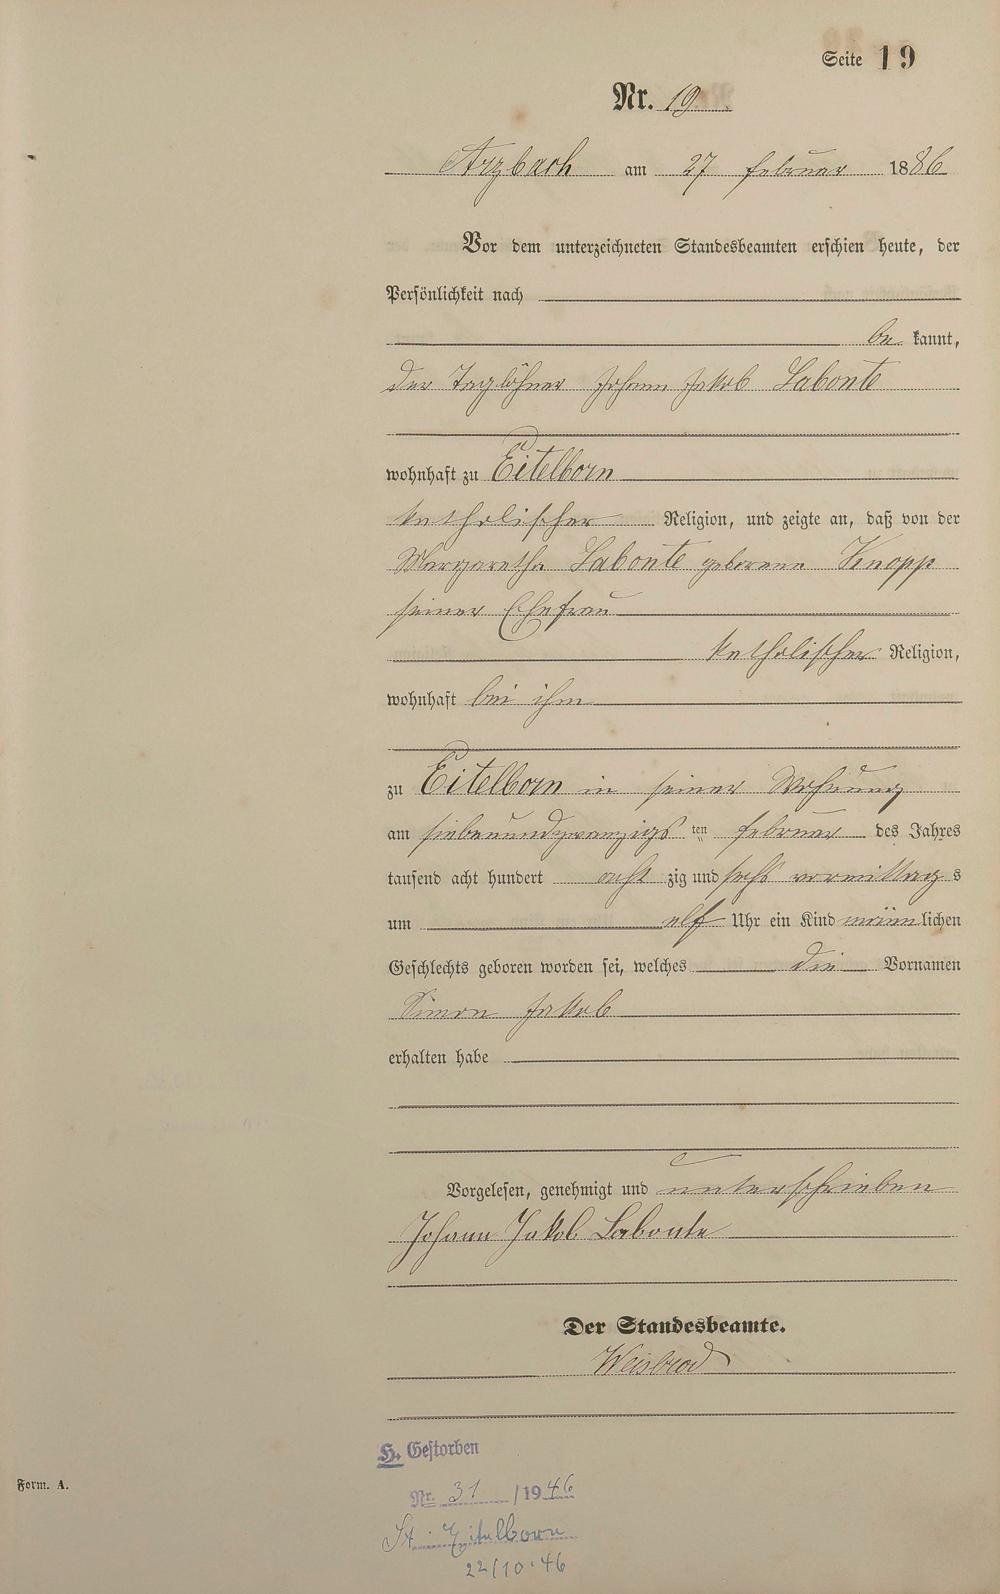 Seite 19
Nr. 19
Arzbach am 27 Februar 1886
Vor dem unterzeichneten Standesbeamten erschien heute, der
Persönlichkeit nach
be kannt,
der Taglöhner Johann Jakob Labonte
wohnhaft zu Eitelborn
katholischer Religion, und zeigte an, daß von der
Margaretha Labonte geborene Knopp
seiner Ehefrau
katholischer Religion,
wohnhaft bei ihm
zu Eitelborn in seiner Wohnung
am siebenundzwanzigs ten Februar des Jahres
tausend acht hundert acht zig und sechs vormittag s
um elf Uhr ein Kind männlichen
Geschlechts geboren worden sei, welches die Vornamen
Simon Jakob
erhalten habe
Vorgelesen, genehmigt und unterschrieben
Johann Jakob Labonte
Der Standesbeamte.
Weisbrod
H. Gestorben
Nr. 31 /1946
St. Eitelborn
22/10.46
Form. A.